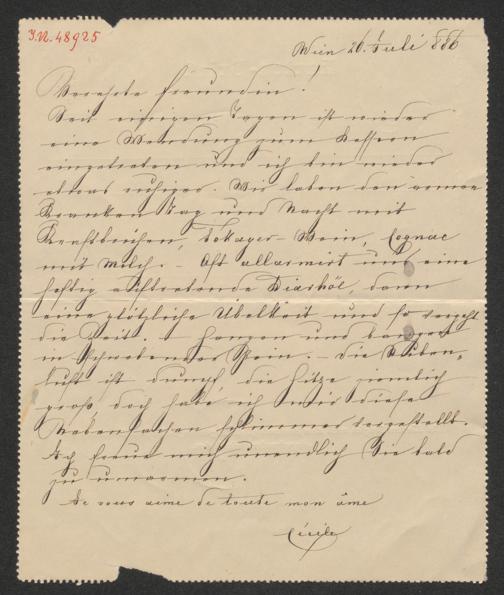 J.N. 48925
Wien 26. Juli 886
Verehrte Freundin!
Seit einigen Tagen ist wieder
eine Wendung zum Bessern
eingetreten und ich bin wieder
etwas ruhiger. Wir laben den armen
Kranken Tag und Nacht mit
Kraftbrühen, Tokayer-Wein, Cognac
mit Milch. – Oft allarmirt uns eine
heftig auftretende Diarhöe, dann
eine plötzliche Übelkeit und so vergeht
die Zeit in Hangen und Bangen
in schwebender Pein. – Die
luft ist dumpf, die Hitze ziemlich
groß, doch habe ich mir diese
Nebensachen schlimmer vorgestellt.
Ich freue mich unendlich Sie bald
zu umarmen.
Je vous aime de toute mon âme
Cécile